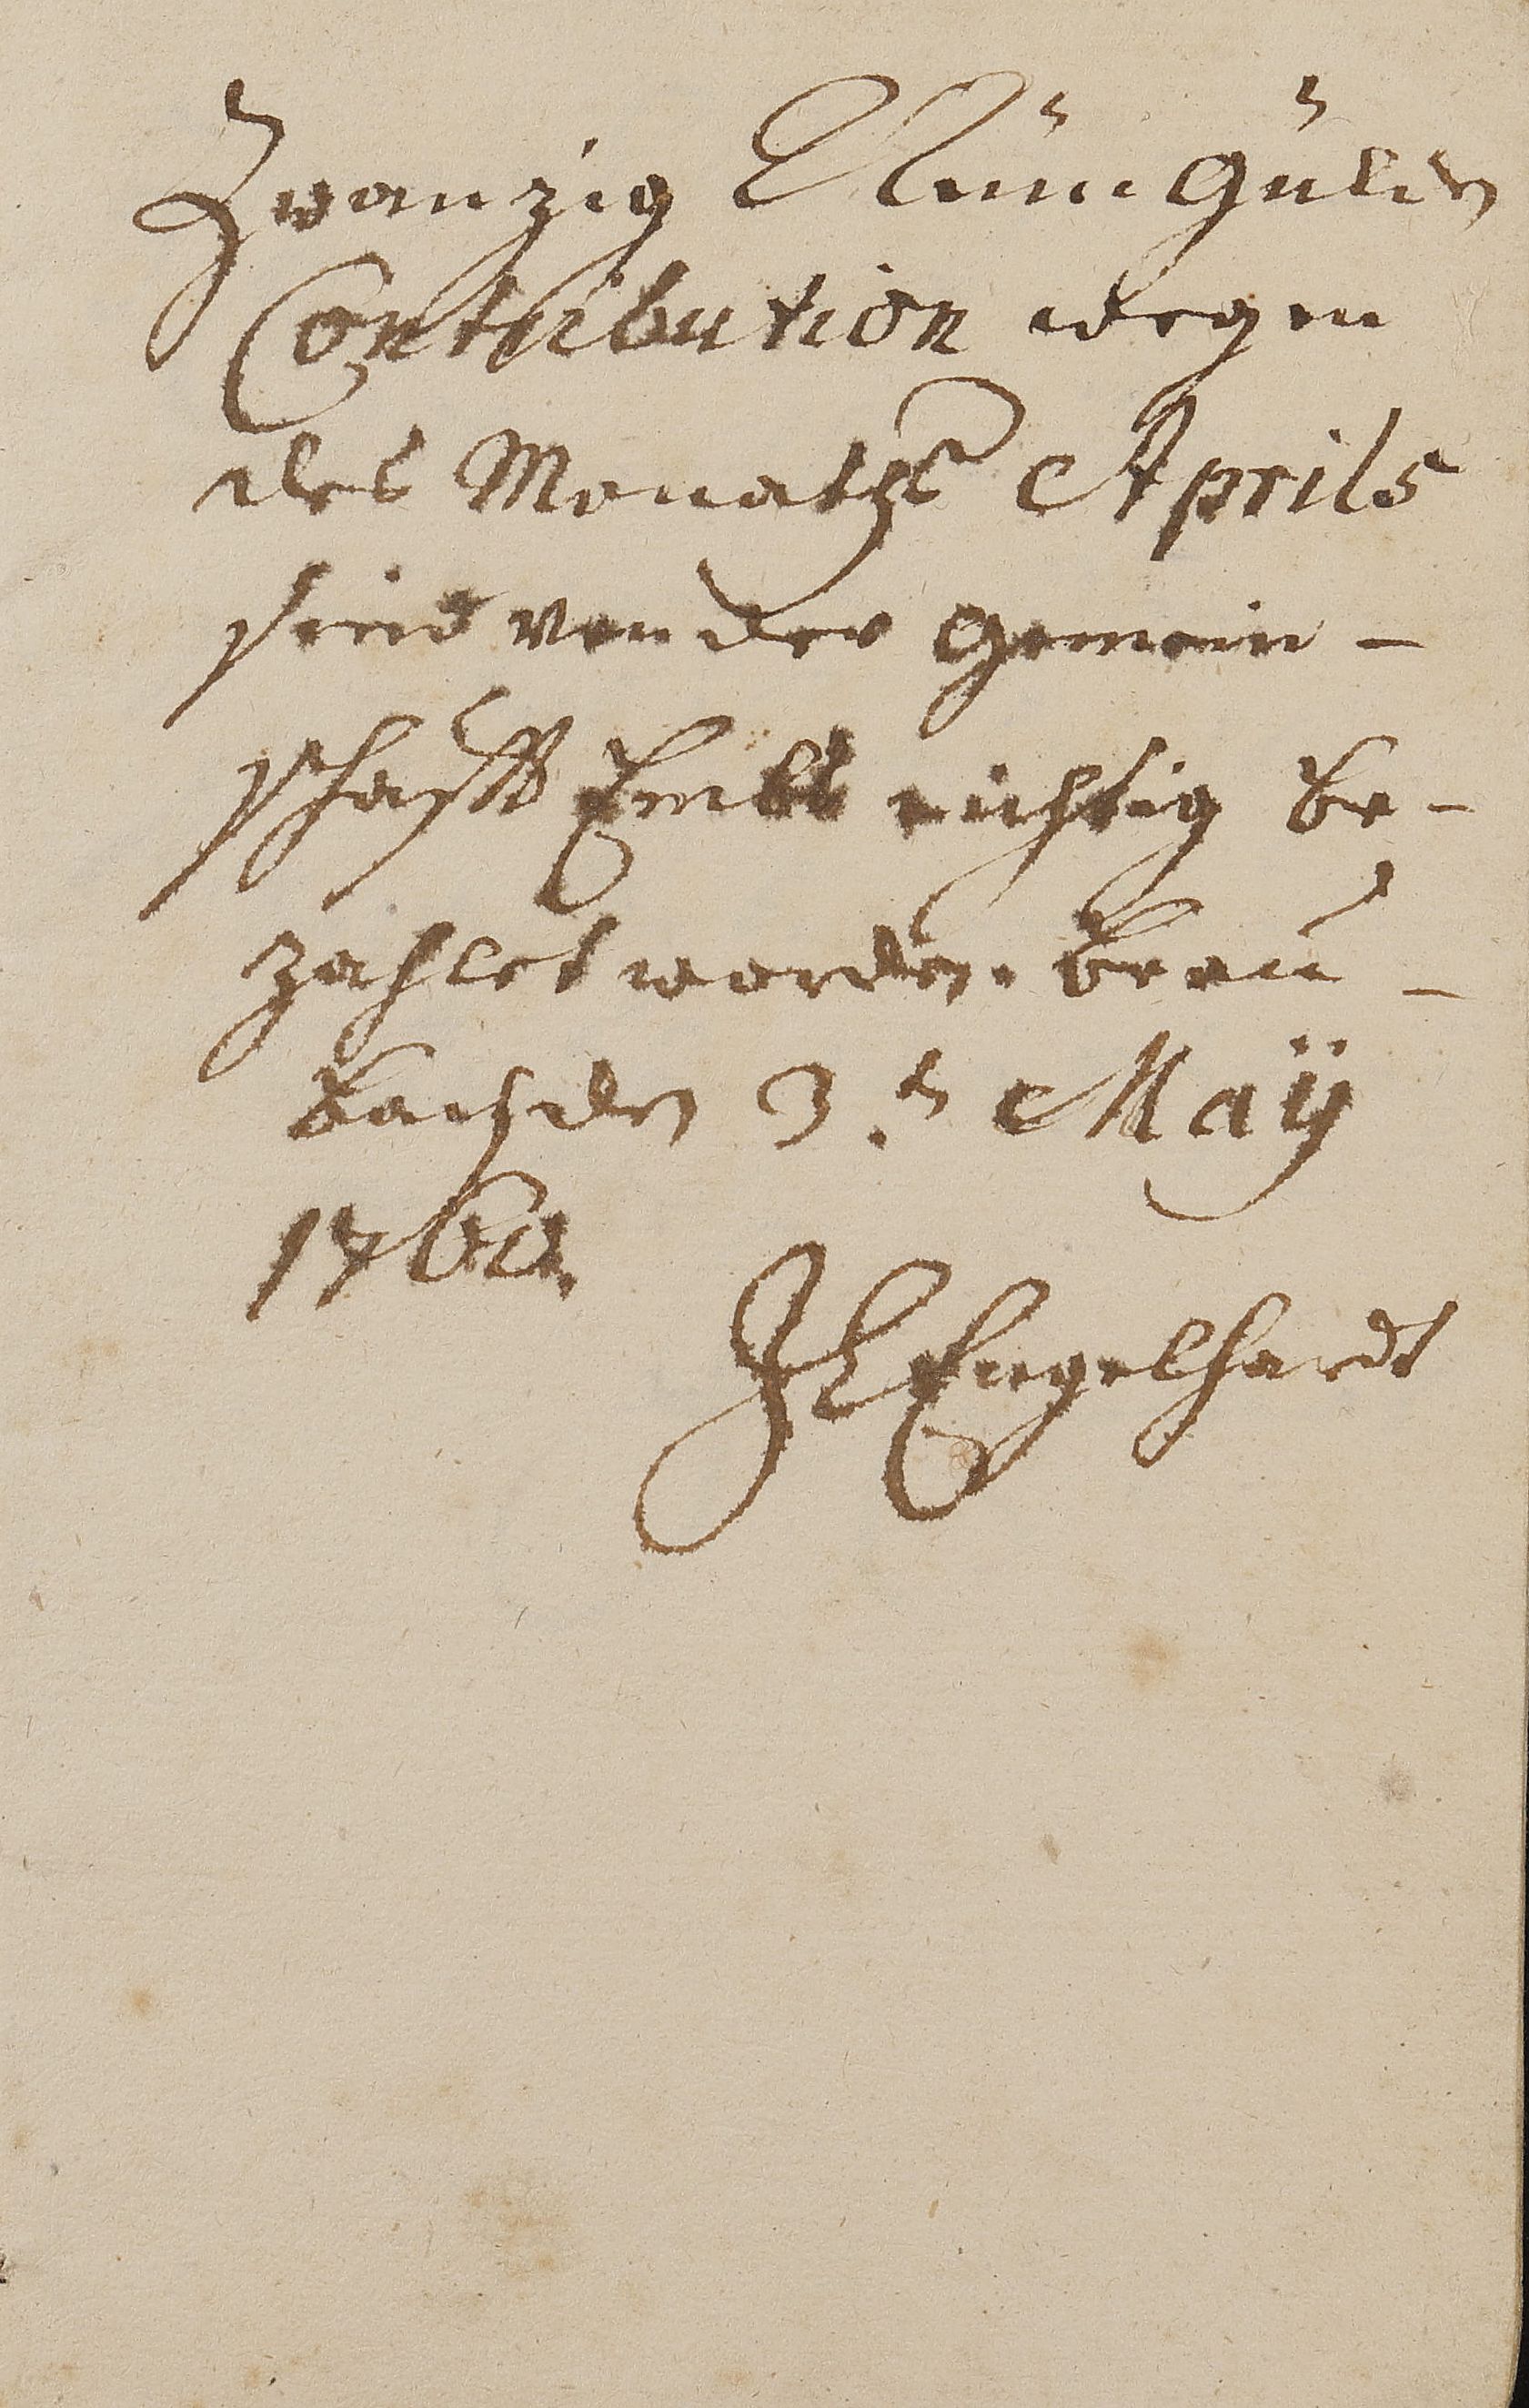 Zwanzig Neün Gülden
Contribution wegen
des Monaths Aprils
seind von der Gemein-
schafft Embs richtig be-
zahlet worden. Brau-
bach den 3.t May
1760.
JL Engelhardt